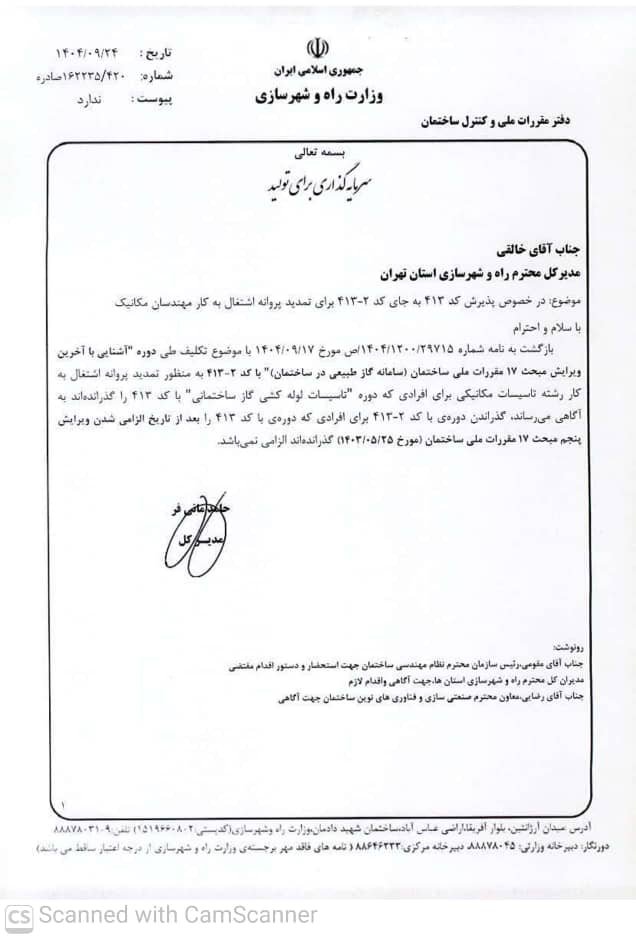 جمهوری اسلامی ایران
وزارت راه و شهرسازی
دفتر مقررات ملی و کنترل ساختمان
تاریخ : ۱۴۰۴/۰۹/۲۴
شماره: ۱۶۲۲۳۵/۴۲۰صادره
پیوست : ندارد
بسمه تعالی
سرمایه گذاری برای تولید
جناب آقای خالقی
مدیرکل محترم راه و شهرسازی استان تهران
موضوع: در خصوص پذیرش کد ۴۱۳ به جای کد ۲-۴۱۳ برای تمدید پروانه اشتغال به کار مهندسان مکانیک
با سلام و احترام
بازگشت به نامه شماره ۱۴۰۴/۱۲۰۰/۲۹۷۱۵/ص مورخ ۱۴۰۴/۰۹/۱۷ با موضوع تکلیف طی دوره "آشنایی با آخرین
ویرایش مبحث ۱۷ مقررات ملی ساختمان (سامانه گاز طبیعی در ساختمان)" با کد ۲-۴۱۳ به منظور تمدید پروانه اشتغال به
کار رشته تاسیسات مکانیکی برای افرادی که دوره "تاسیسات لوله کشی گاز ساختمانی" با کد ۴۱۳ را گذرانده‌اند به
آگاهی می‌رساند، گذراندن دوره‌ی با کد ۲-۴۱۳ برای افرادی که دوره‌ی با کد ۴۱۳ را بعد از تاریخ الزامی شدن ویرایش
پنجم مبحث ۱۷ مقررات ملی ساختمان (مورخ ۱۴۰۳/۰۵/۲۵) گذرانده‌اند الزامی نمی‌باشد.
حامد مانی فر
مدیر کل
رونوشت:
جناب آقای مقومی،رئیس سازمان محترم نظام مهندسی ساختمان جهت استحضار و دستور اقدام مقتضی
مدیران کل محترم راه و شهرسازی استان ها،جهت آگاهی واقدام لازم
جناب آقای رضایی،معاون محترم صنعتی سازی و فناوری های نوین ساختمان جهت آگاهی
۱
آدرس :میدان آرژانتین، بلوار آفریقا،اراضی عباس آباد،ساختمان شهید دادمان،وزارت راه وشهرسازی(کدپستی:۱۵۱۹۶۶۰۸۰۲) تلفن:۹-۸۸۸۷۸۰۳۱
دورنگار: دبیرخانه وزارتی: ۸۸۸۷۸۰۴۵، دبیرخانه مرکزی:۸۸۶۴۶۲۳۳ ( نامه های فاقد مهر برجسته‌ی وزارت راه و شهرسازی از درجه اعتبار ساقط می باشد)
CS Scanned with CamScanner